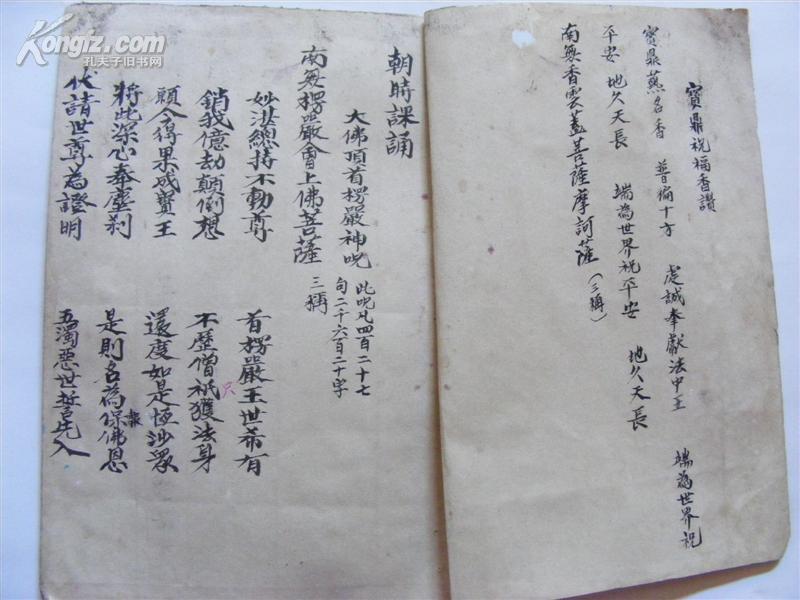 寶鼎祝福香讚
寶鼎爇名香 普徧十方 虔誠奉獻法中王 端為世界祝
平安 地久天長 端為世界祝平安 地久天長
南無香雲蓋菩薩摩訶薩(三稱)
朝時課誦
大佛頂首楞嚴神咒 此咒凡四百二十七
句二千六百二十字
南無楞嚴會上佛菩薩 三稱
妙湛總持不動尊 首楞嚴王世希有
銷我億劫顛倒想 不歷僧祇獲法身
只
願今得果成寶王 還度如是恆沙眾
將此深心奉塵刹 是則名為保佛恩
報
伏請世尊為證明 五濁惡世誓先入
Kongfz.com
孔夫子旧书网